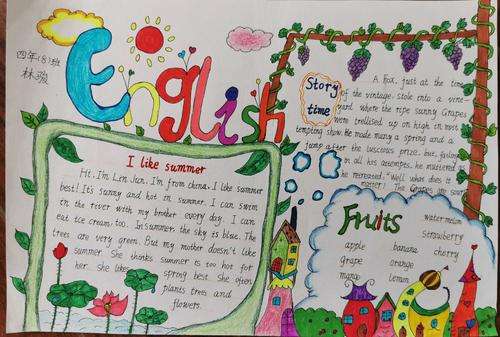 四年(8)班
林骏
English
I like summer
Hi, I'm Lin Jun, I'm from china. I like summer
best! It's sunny and hot in summer. I can swim
in the river with my brother every day. I can
eat ice cream, too. In summer, the sky is blue. The
trees are very green. But my mother doesn't like
summer. She thinks summer is too hot for
her. She likes spring best. She often
plants trees and
flowers.
Story
time
A Fox, just at the time
of the vintage, stole into a vine-
yard where the ripe sunny Grapes
were trellised up on high in most
tempting show. He made many a spring and a
jump after the luscious prize; but, failing
in all his attempts, he muttered as
he retreated, "Well! what does it
matter! The Grapes are sour
Fruits
water melon
strawberry
apple banana cherry
grape orange
mango lemon